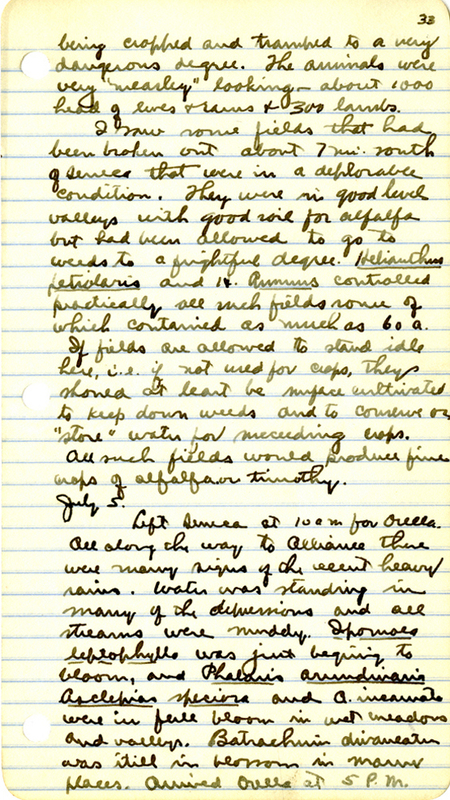 33
being cropped and tramped to a very
dangerous degree. The animals were
very "measley" looking - about 1000
head of ewes & rams & 300 lambs.
I saw some fields that had
been broken out about 7 mi. south
of Seneca that were in a deplorable
condition. They were in good level
valleys with good soil for alfalfa
but had been allowed to go to
weeds to a frightful degree. Helianthus
petiolaris and H. annuus controlled
practically all such fields some of
which contained as much as 60 a.
If fields are allowed to stand idle
here, i.e. if not used for crops, they
should at least be surface cultivated
to keep down weeds and to conserve or
"store" water for succeeding crops.
All such fields would produce fine
crops of alfalfa or timothy.
July 5.
Left Seneca at 10 am for Orella.
All along the way to Alliance there
were many signs of the recent heavy
rains. Water was standing in
many of the depressions and all
streams were muddy. Ipomoea
leptophylla was just begining to
bloom, and Phalaris arundinacea
Asclepias speciosa and A. incarnata
were in full bloom in wet meadows
and valleys. Batrachium divaricatum
was still in blossom in many
places. Arrived Orella at 5 P.M.